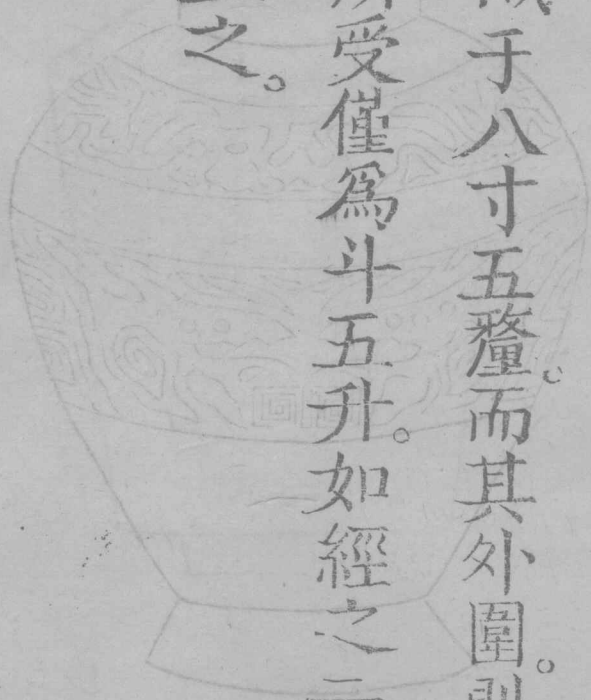 于八寸五釐。而其外圍。則
受僅為斗五升。如經之二
之。